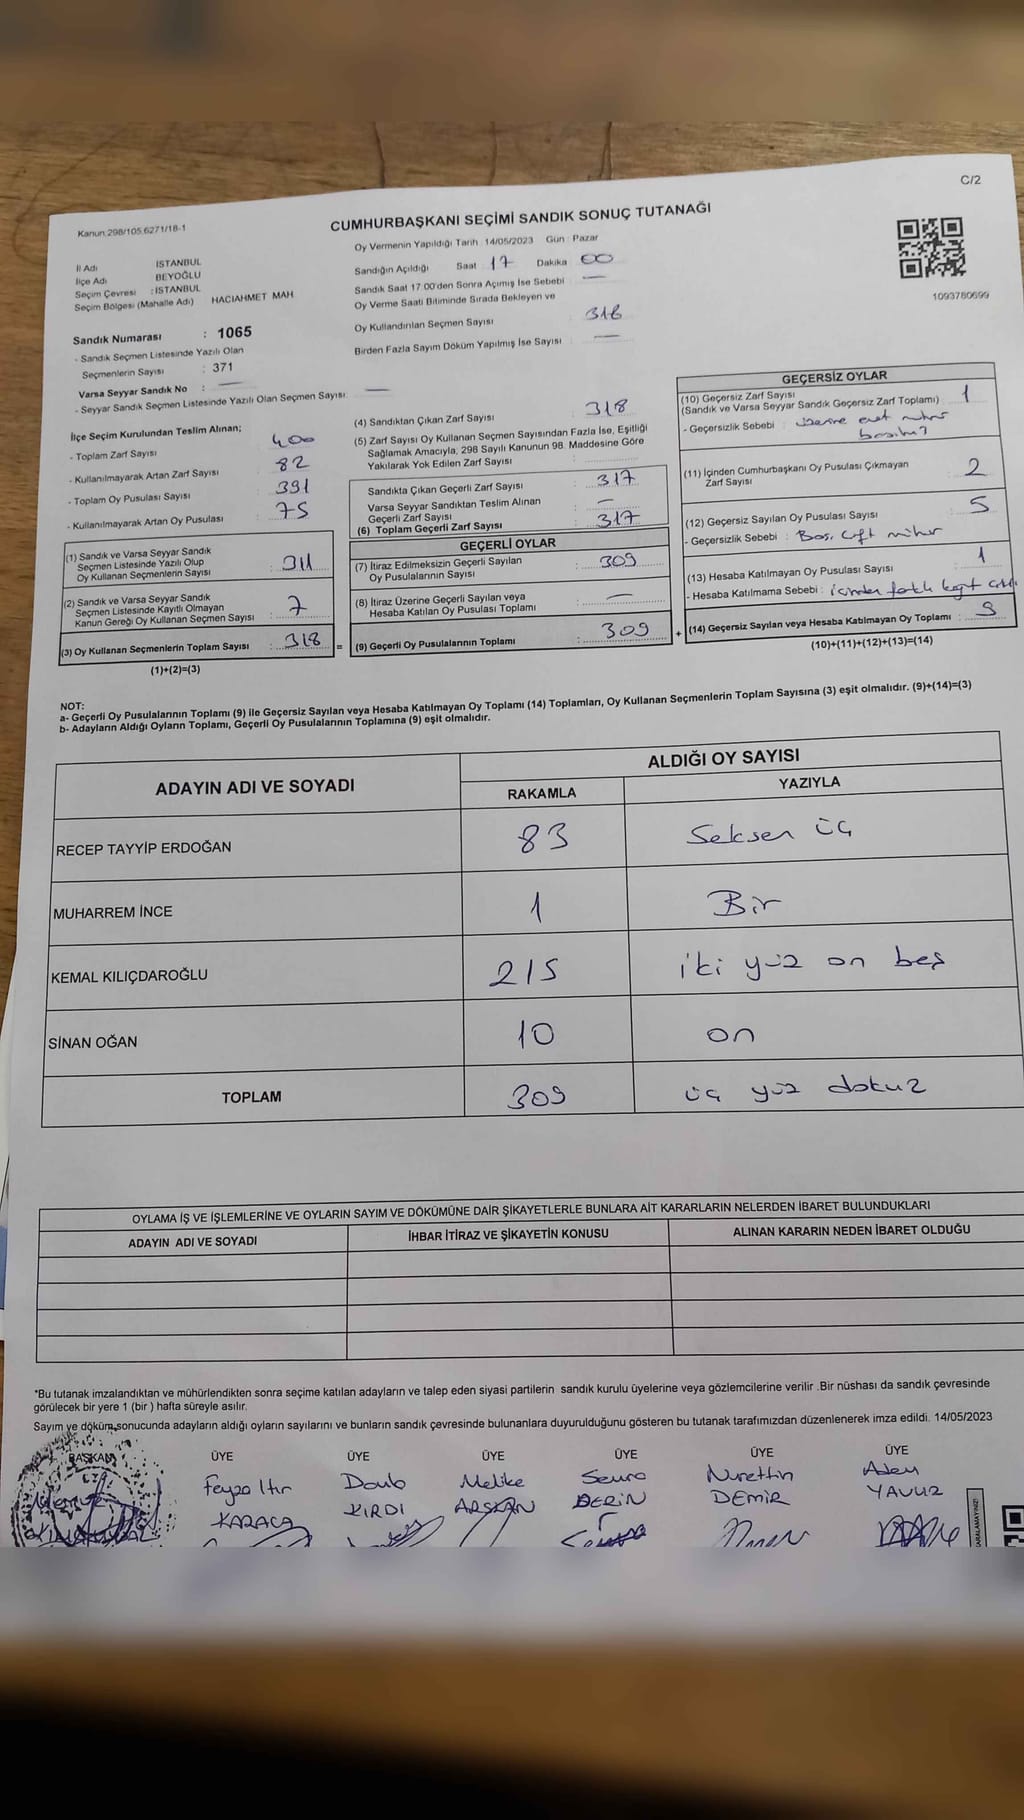 C/2
Kanun 298/105,6271/18-1
CUMHURBAŞKANI SEÇİMİ SANDIK SONUÇ TUTANAĞI
Oy Vermenin Yapıldığı Tarih 14/05/2023 Gün : Pazar
İl Adı İSTANBUL
İlçe Adı BEYOĞLU
Seçim Çevresi : İSTANBUL
Seçim Bölgesi (Mahalle Adı) HACIAHMET MAH
Sandığın Açıldığı Saat 17 Dakika 00
Sandık Saat 17.00'den Sonra Açılmış İse Sebebi : —
Oy Verme Saati Bitiminde Sırada Bekleyen ve
Oy Kullandırılan Seçmen Sayısı : 318
Birden Fazla Sayım Döküm Yapılmış İse Sayısı : —
1093780699
Sandık Numarası : 1065
- Sandık Seçmen Listesinde Yazılı Olan
Seçmenlerin Sayısı : 371
Varsa Seyyar Sandık No : —
- Seyyar Sandık Seçmen Listesinde Yazılı Olan Seçmen Sayısı: —
İlçe Seçim Kurulundan Teslim Alınan;
- Toplam Zarf Sayısı : 400
- Kullanılmayarak Artan Zarf Sayısı : 82
- Toplam Oy Pusulası Sayısı : 391
- Kullanılmayarak Artan Oy Pusulası : 75
(1) Sandık ve Varsa Seyyar Sandık
Seçmen Listesinde Yazılı Olup
Oy Kullanan Seçmenlerin Sayısı : 311
(2) Sandık ve Varsa Seyyar Sandık
Seçmen Listesinde Kayıtlı Olmayan
Kanun Gereği Oy Kullanan Seçmen Sayısı : 7
(3) Oy Kullanan Seçmenlerin Toplam Sayısı : 318
(1)+(2)=(3)
=
(4) Sandıktan Çıkan Zarf Sayısı : 318
(5) Zarf Sayısı Oy Kullanan Seçmen Sayısından Fazla İse, Eşitliği
Sağlamak Amacıyla, 298 Sayılı Kanunun 98. Maddesine Göre
Yakılarak Yok Edilen Zarf Sayısı :
Sandıkta Çıkan Geçerli Zarf Sayısı : 317
Varsa Seyyar Sandıktan Teslim Alınan
Geçerli Zarf Sayısı : —
(6) Toplam Geçerli Zarf Sayısı : 317
GEÇERLİ OYLAR
(7) İtiraz Edilmeksizin Geçerli Sayılan
Oy Pusulalarının Sayısı : 309
(8) İtiraz Üzerine Geçerli Sayılan veya
Hesaba Katılan Oy Pusulası Toplamı : —
(9) Geçerli Oy Pusulalarının Toplamı : 309
+
GEÇERSİZ OYLAR
(10) Geçersiz Zarf Sayısı : 1
(Sandık ve Varsa Seyyar Sandık Geçersiz Zarf Toplamı)
- Geçersizlik Sebebi : üzerine evet mührü
(11) İçinden Cumhurbaşkanı Oy Pusulası Çıkmayan
Zarf Sayısı : 2
(12) Geçersiz Sayılan Oy Pusulası Sayısı : 5
- Geçersizlik Sebebi : Boş, çift mühür
(13) Hesaba Katılmayan Oy Pusulası Sayısı : 1
- Hesaba Katılmama Sebebi : içinden farklı kağıt
(14) Geçersiz Sayılan veya Hesaba Katılmayan Oy Toplamı : 9
(10)+(11)+(12)+(13)=(14)
NOT:
a- Geçerli Oy Pusulalarının Toplamı (9) ile Geçersiz Sayılan veya Hesaba Katılmayan Oy Toplamı (14) Toplamları, Oy Kullanan Seçmenlerin Toplam Sayısına (3) eşit olmalıdır. (9)+(14)=(3)
b- Adayların Aldığı Oyların Toplamı, Geçerli Oy Pusulalarının Toplamına (9) eşit olmalıdır.
ADAYIN ADI VE SOYADI ALDIĞI OY SAYISI
RAKAMLA YAZIYLA
RECEP TAYYİP ERDOĞAN 83 Seksen üç
MUHARREM İNCE 1 Bir
KEMAL KILIÇDAROĞLU 215 iki yüz on beş
SİNAN OĞAN 10 on
TOPLAM 309 üç yüz dokuz
OYLAMA İŞ VE İŞLEMLERİNE VE OYLARIN SAYIM VE DÖKÜMÜNE DAİR ŞİKAYETLERLE BUNLARA AİT KARARLARIN NELERDEN İBARET BULUNDUKLARI
ADAYIN ADI VE SOYADI İHBAR İTİRAZ VE ŞİKAYETİN KONUSU ALINAN KARARIN NEDEN İBARET OLDUĞU
*Bu tutanak imzalandıktan ve mühürlendikten sonra seçime katılan adayların ve talep eden siyasi partilerin sandık kurulu üyelerine veya gözlemcilerine verilir .Bir nüshası da sandık çevresinde
görülecek bir yere 1 (bir ) hafta süreyle asılır.
Sayım ve döküm sonucunda adayların aldığı oyların sayılarını ve bunların sandık çevresinde bulunanlara duyurulduğunu gösteren bu tutanak tarafımızdan düzenlenerek imza edildi. 14/05/2023
BAŞKAN ÜYE ÜYE ÜYE ÜYE ÜYE ÜYE
Feyza Itır Melike Nurettin Adem
KARACA KIRDI ARSLAN DERİN DEMİR YAVUZ
KARALAMAYINIZ!